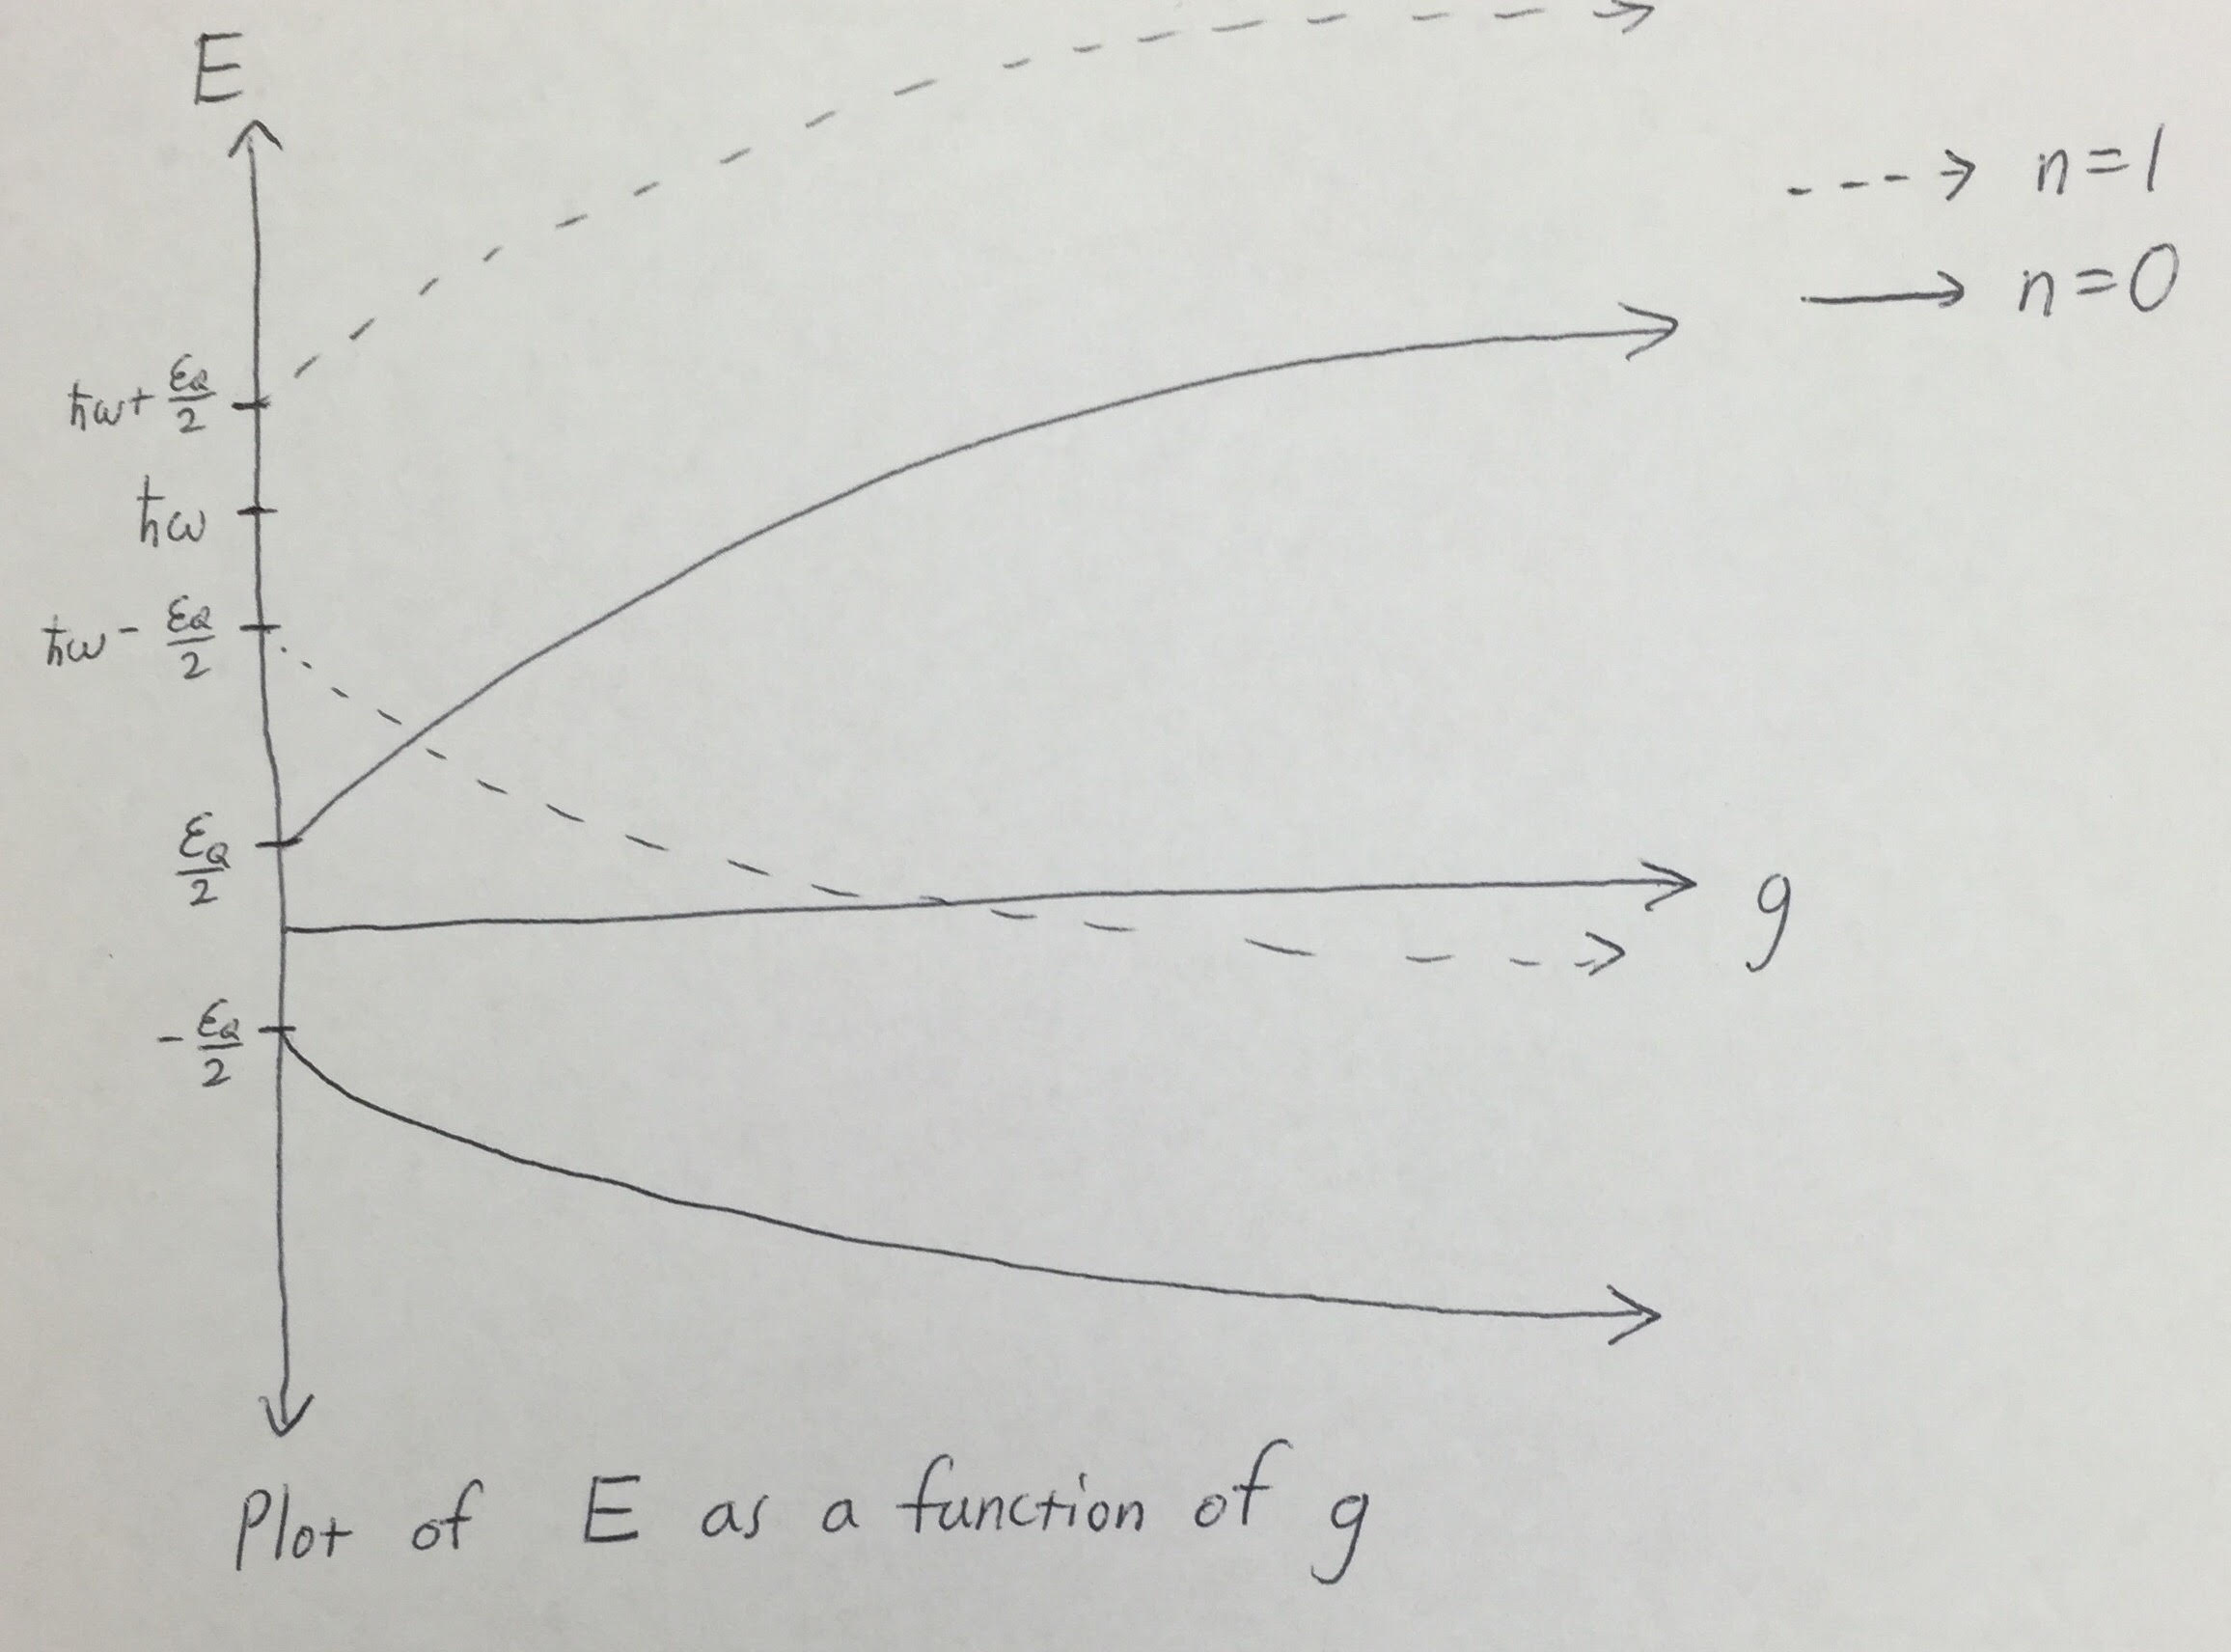 E
---> n=1
→ n=0
ħω + εQ/2
ħω
ħω - εQ/2
εQ/2
g
-εQ/2
Plot of E as a function of g